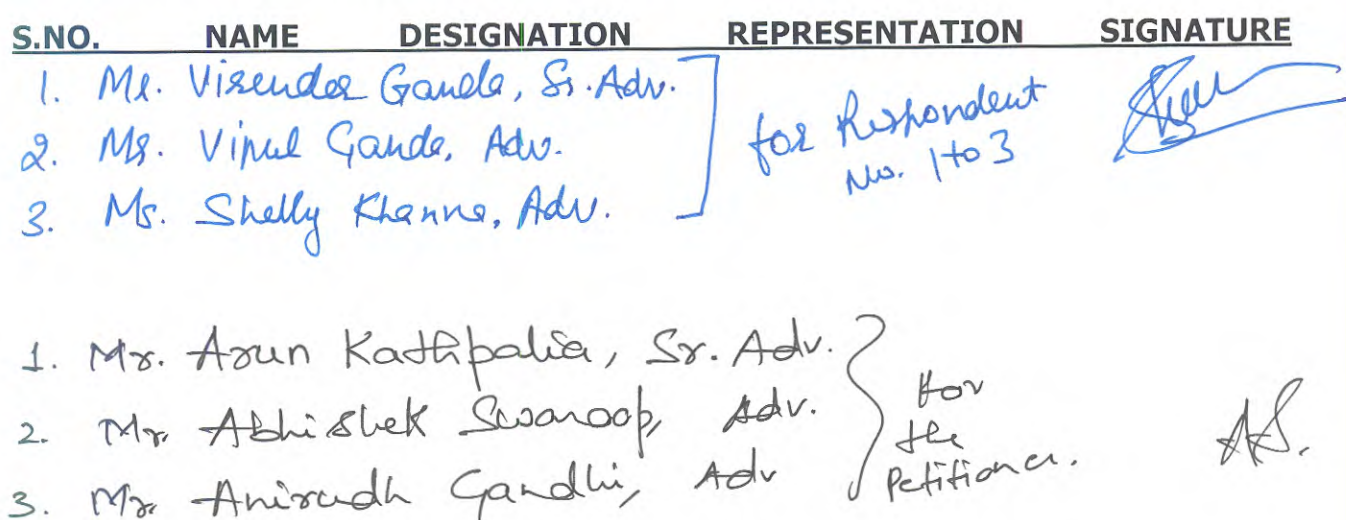 S.NO. NAME DESIGNATION REPRESENTATION SIGNATURE
1. Mr. Virender Ganda, Sr. Adv.
2. Mr. Vipul Ganda, Adv.
3. Ms. Shelly Khanna, Adv.
for Respondent
No. 1 to 3
1. Mr. Arun Kathpalia, Sr. Adv.
2. Mr. Abhishek Swaroop, Adv.
3. Mr. Anirudh Gandhi, Adv
for
the
Petitioner.
AS.